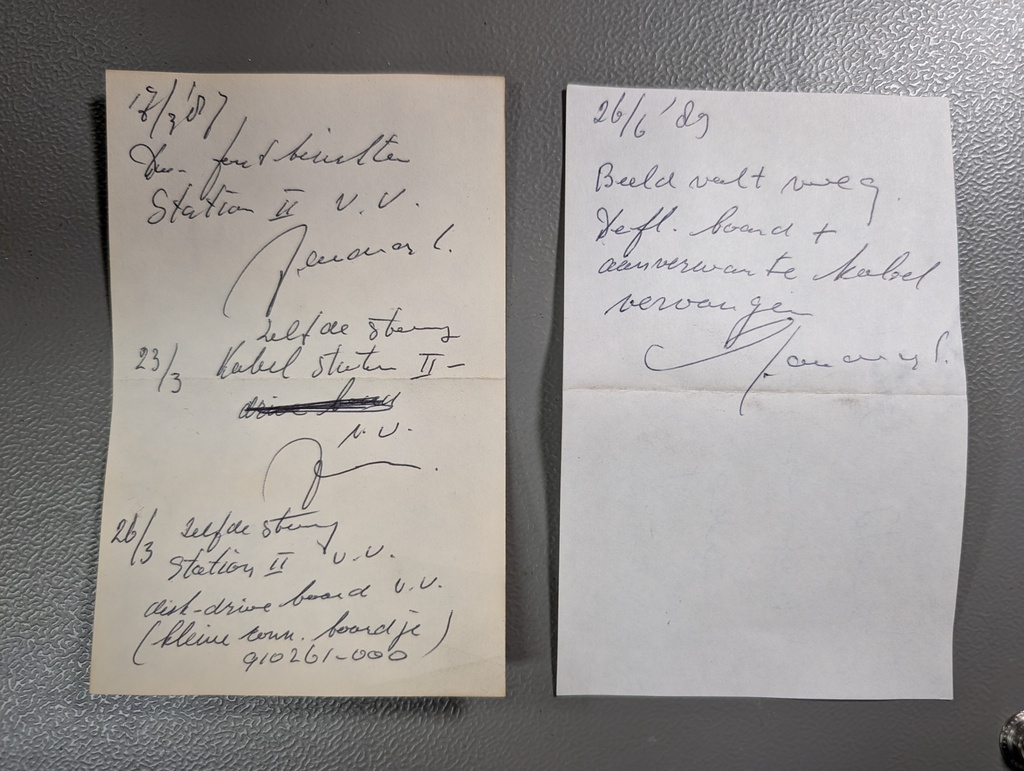 17/3 '87
Div. foutberichten
Station II v.v.
23/3 Zelfde storing
Kabel Station II -
v.v.
26/3 zelfde storing
Station II v.v.
disk-drive board v.v.
(kleine conn. boardje)
910261-000
26/6 '89
Beeld valt weg
Defl. board +
aanverwante kabel
vervangen